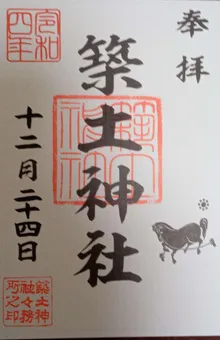 奉拝
築土神社
築土神社
十二月二十四日
令和四年
築土神社々務所之印